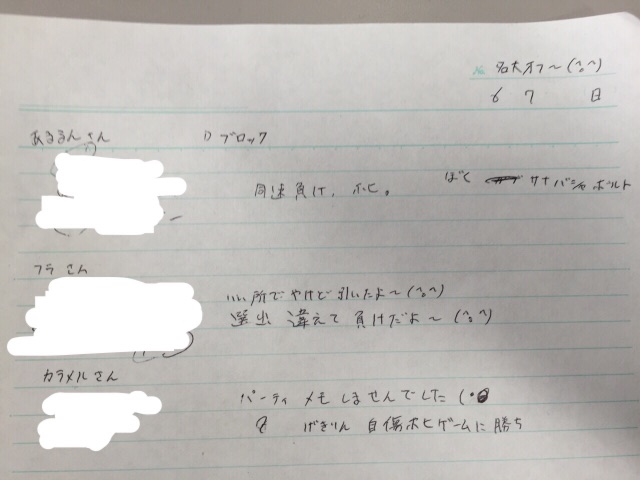 名大オフ〜(^。^)
6 7 日
あるるんさん Dブロック
同速負け、ホヒ。 ぼく サナバシャボルト
フラさん
いい所でやけど引いたよ〜(^。^)
選出 違えて負けだよ〜(^。^)
カラメルさん
パーティメモしませんでした(・
げきりん 自傷ホヒゲームに勝ち